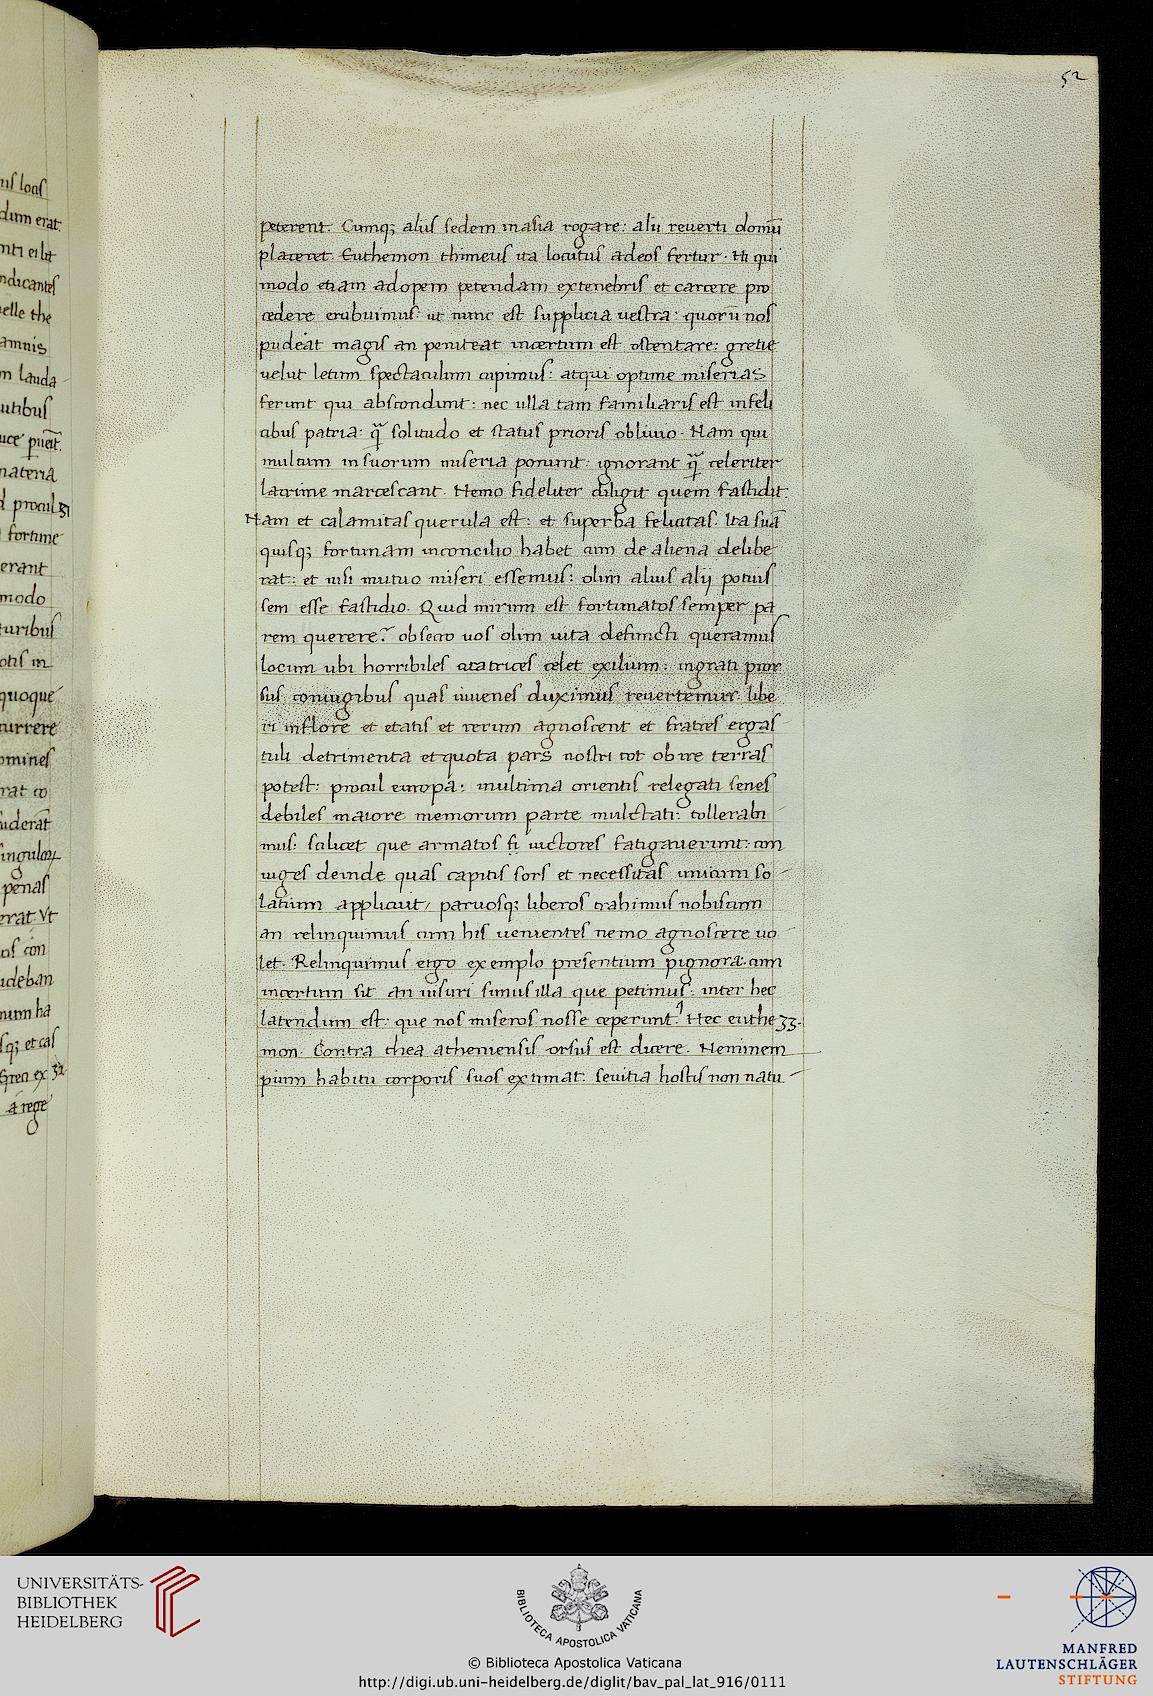 52
peterent. Cumq; alus sedem in asia rogare: alii reverti domū
placeret. Euthemon thimeus ita locutus adeos fertur. Hi qui
modo etiam adopem petendam extenebris et carcere pro
cedere erubuimus: ut nunc est supplicia uestra: quorū nos
pudeat magis an peniteat incertum est ostentare: gretie
uelut letum spectaculum cupimus: atqui optime miserias
ferunt qui abscondunt: nec ulla tam familiaris est infeli
cibus patria: q̄ solitudo et status prioris obliuio. Nam qui
multum in suorum miseria ponunt: ignorant q̄ celeriter
lacrime marcescant. Nemo fideliter diligit quem fastidit.
Nam et calamitas querula est: et superba felicitas. Ita suā
quisq; fortunam inconcilio habet cum de aliena delibe
rat: et nisi mutuo miseri essemus: olim alius alij potuis
sem esse fastidio. Quid mirum est fortunatos semper pa
rem querere? obsecro uos olim uita defuncti queramus
locum ubi horribiles citatrices celet exilium: ingrati pror
sus coniugibus quas iuuenes duximus reuertemur. libe
ri inflore et etatis et rerum agnoscent et fratres ergas
tuli detrimenta et quota pars nostri tot obire terras
potest: procul europa: inultima orientis relegati senes
debiles maiore memorum parte mulctati: tollerabi
mus: scilicet que armatos & uictores fatigauerunt: con
iuges deinde quas capitis sors et necessitas unicum so
latium applicuit/ paruosq; liberos trahimus nobiscum
an relinquimus cum his uenientes nemo agnoscere uo
let. Relinquimus ergo exemplo presentium pignora: cum
incertum sit an uisuri simus illa que petimus: inter hec
latendum est: que nos miseros nosse ceperunt. Hec euthe 33.
mon. Contra thea atheniensis orsus est dicere. Neminem
pium habitu corporis suos extimat. seuitia hostis non natu.
us locis
dum erat.
ndicantes
elle the
amnis
m lauda
utibus
materia
d procul 31
fortune
erant
modo
turibus
otis in
quoque
currere
omines
rat co
penas
erat Vt
os con
udeban
num ha
sq; et cas
Greci ex 32
a rege
UNIVERSITÄTS-
BIBLIOTHEK
HEIDELBERG
BIBLIOTECA APOSTOLICA VATICANA
© Biblioteca Apostolica Vaticana
http://digi.ub.uni-heidelberg.de/diglit/bav_pal_lat_916/0111
MANFRED
LAUTENSCHLÄGER
STIFTUNG